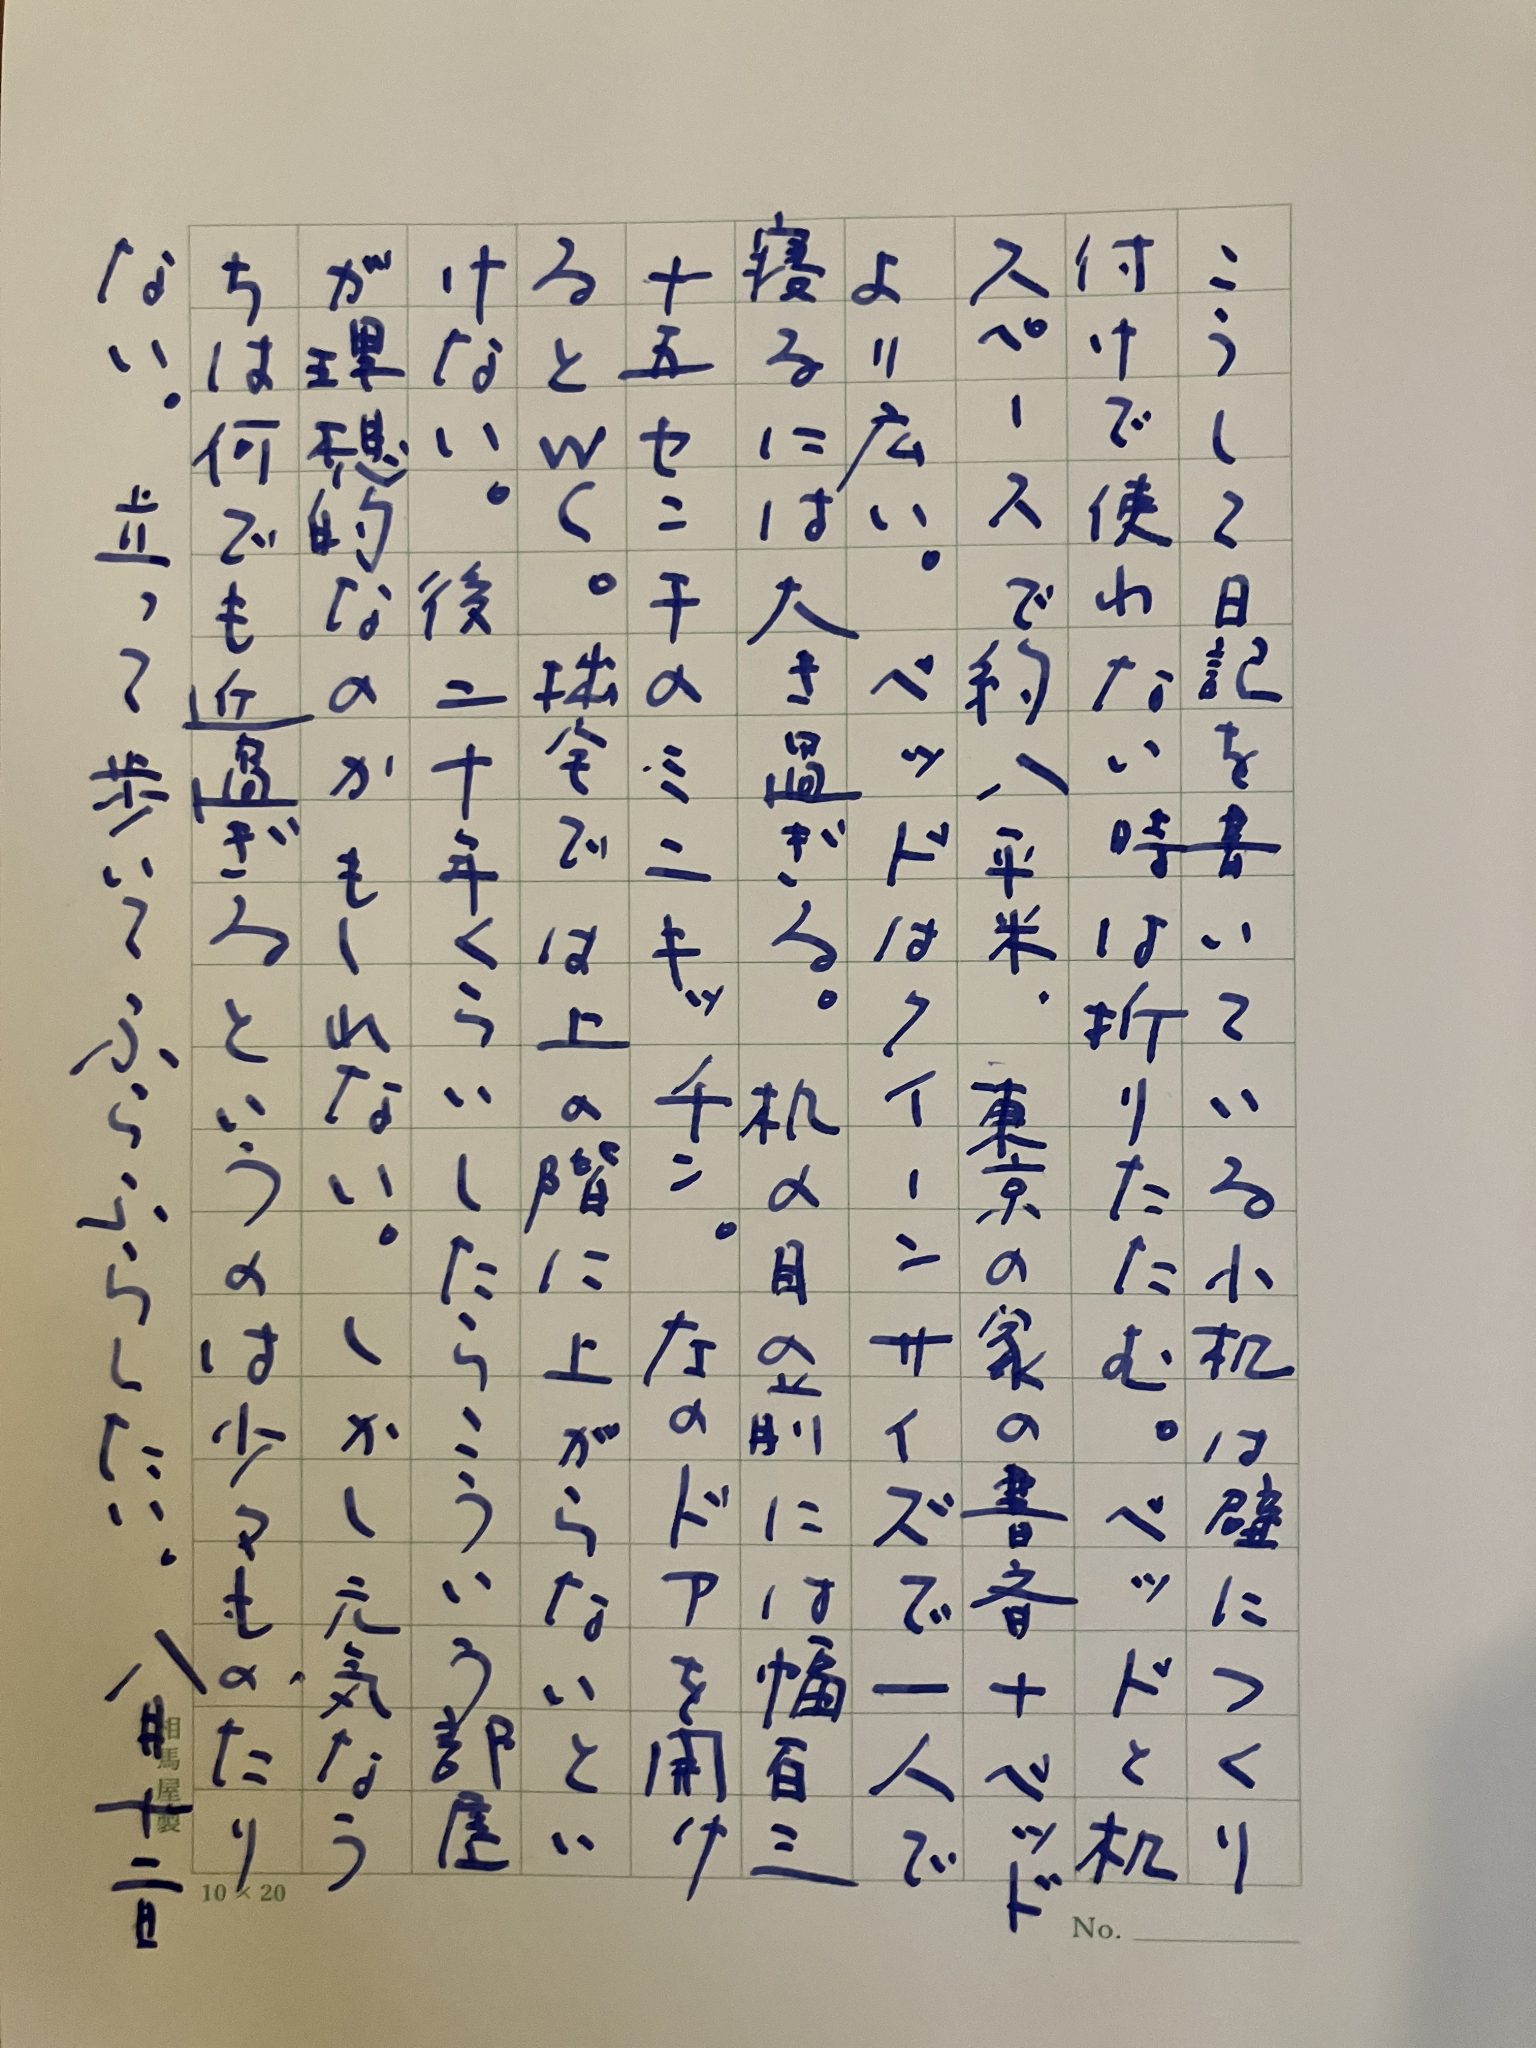 こうして日記を書いている小机は壁につくり
付けで使わない時は折りたたむ。ベッドと机
スペースで約八平米.東京の家の書斎+ベッド
より広い。ベッドはクイーンサイズで一人で
寝るには大き過ぎる。机の目の前には幅百三
十五センチのミニキッチン。なのドアを開け
るとWC。琉舎では上の階に上がらないとい
けない。後二十年くらいしたらこういう部屋
が理想的なのかもしれない。しかし元気なう
ちは何でも近過ぎるというのは少々もの、たり
ない。立って歩いてぶらぶらしたい。八月十二日
相馬屋製
10×20
No.